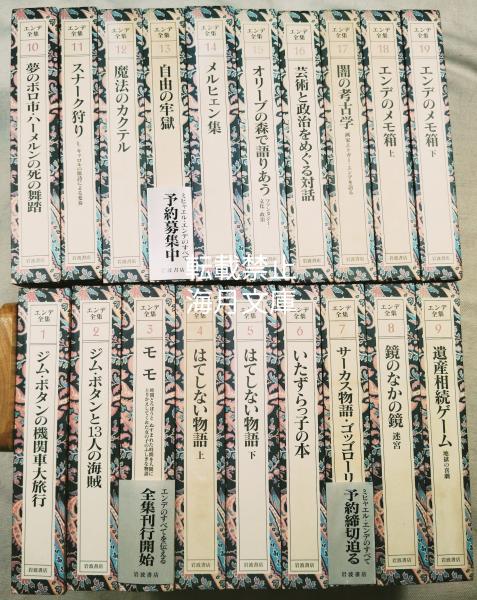 エンデ全集
10
夢のボロ市・ハーメルンの死の舞踏
岩波書店
エンデ全集
11
スナーク狩り
L.キャロルの原詩による変奏
岩波書店
エンデ全集
12
魔法のカクテル
岩波書店
エンデ全集
13
自由の牢獄
ミヒャエル・エンデのすべて
予約募集中
岩波書店
エンデ全集
14
メルヒェン集
岩波書店
エンデ全集
オリーブの森で語りあう
ファンタジー・文化・政治
岩波書店
エンデ全集
16
芸術と政治をめぐる対話
岩波書店
エンデ全集
17
闇の考古学
画家エトガー・エンデを語る
岩波書店
エンデ全集
18
エンデのメモ箱 上
岩波書店
エンデ全集
19
エンデのメモ箱 下
岩波書店
転載禁止
海月文庫
エンデ全集
1
ジム・ボタンの機関車大旅行
岩波書店
エンデ全集
2
ジム・ボタンと13人の海賊
岩波書店
エンデ全集
3
モモ
時間どろぼうと ぬすまれた時間を人間に
とりかえしてくれた女の子のふしぎな物語
エンデのすべてを伝える
全集刊行開始
岩波書店
エンデ全集
4
はてしない物語 上
岩波書店
エンデ全集
5
はてしない物語 下
岩波書店
エンデ全集
6
いたずらっ子の本
岩波書店
エンデ全集
7
サーカス物語・ゴッゴローリ
ミヒャエル・エンデのすべて
予約締切迫る
岩波書店
エンデ全集
8
鏡のなかの鏡
迷宮
岩波書店
エンデ全集
9
遺産相続ゲーム
地獄の喜劇
岩波書店